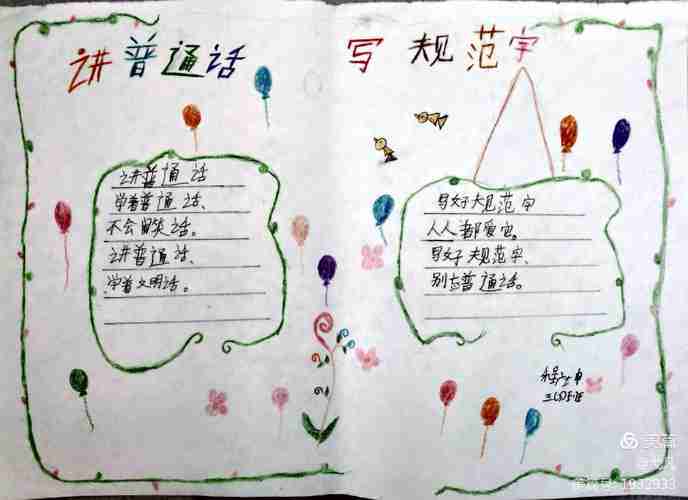 讲普通话 写规范字
讲普通话
学着普通话、
不会闹笑话。
讲普通话、
学着文明话。
写好规范字
人人都爱它。
写好规范字、
别忘普通话。
美篇